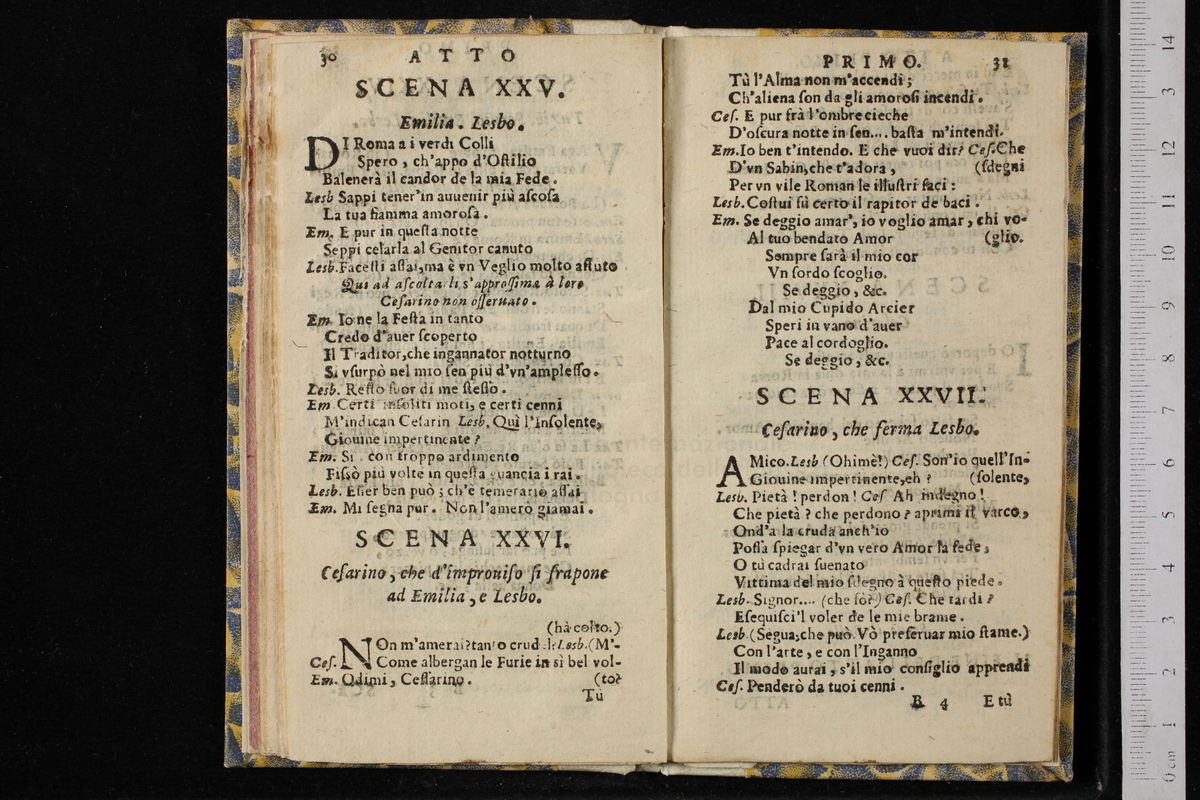 30 ATTO
SCENA XXV.
Emilia. Lesbo.
DI Roma a i verdi Colli
Spero, ch'appo d'Oſtilio
Balenerà il candor de la mia Fede.
Lesb Sappi tener'in auuenir più aſcoſa
La tua fiamma amoroſa.
Em. E pur in queſta notte
Seppi celarla al Genitor canuto
Lesb. Faceſti aſſai, ma è vn Veglio molto aſtuto
Qui ad aſcoltarli s'approſſima à loro
Ceſarino non oſſeruato.
Em. Io ne la Feſta in tanto
Credo d'auer ſcoperto
Il Traditor, che ingannator notturno
Si vſurpò nel mio ſen più d'vn'ampleſſo.
Lesb. Reſto fuor di me ſteſſo.
Em. Certi inſoliti moti, e certi cenni
M'indican Ceſarin Lesb. Quì l'inſolente,
Giouine impertinente?
Em. Si. con troppo ardimento
Fiſsò più volte in queſta guancia i rai.
Lesb. Eſſer ben può; ch'è temerario aſſai
Em. Mi ſegna pur. Non l'amerò giamai.
SCENA XXVI.
Ceſarino, che d'improuiſo ſi frapone
ad Emilia, e Lesbo.
(hà colto.)
Ceſ. NOn m'amerai? tanto crudele Lesb. (M'-
Come albergan le Furie in sì bel vol-
Em. Odimi, Ceſſarino. (to?
Tù
PRIMO. 31
Tù l'Alma non m'accendi;
Ch'aliena ſon da gli amoroſi incendi.
Ceſ. E pur frà l'ombre cieche
D'oſcura notte in ſen.... baſta m'intendi.
Em. Io ben t'intendo. E che vuoi dir? Ceſ. Che
D'vn Sabin, che t'adora, (ſdegni
Per vn vile Roman le illuſtri faci:
Lesb. Coſtui fù certo il rapitor de baci.
Em. Se deggio amar', io voglio amar, chi vo-
Al tuo bendato Amor (glio.
Sempre ſarà il mio cor
Vn ſordo ſcoglio.
Se deggio, &c.
Dal mio Cupido Arcier
Speri in vano d'auer
Pace al cordoglio.
Se deggio, &c.
SCENA XXVII.
Ceſarino, che ferma Lesbo.
AMico. Lesb (Ohimè!) Ceſ. Son'io quell'In-
Giouine impertinente, eh? (ſolente,
Lesb. Pietà! perdon! Ceſ Ah indegno!
Che pietà? che perdono? aprimi il varco,
Ond'a la cruda anch'io
Poſſa ſpiegar d'vn vero Amor la fede,
O tù cadrai ſuenato
Vittima del mio ſdegno à queſto piede.
Lesb. Signor.... (che ſò?) Ceſ. Che tardi?
Eſequiſci'l voler de le mie brame.
Lesb (Segua; che può. Vò preſeruar mio ſtame.)
Con l'arte, e con l'Inganno
Il modo aurai, s'il mio conſiglio apprendi
Ceſ. Penderò da tuoi cenni.
B 4 E tù